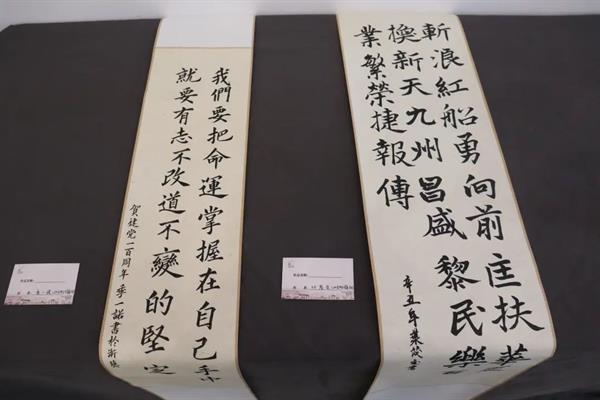 我們要把命運掌握在自己手中
就要有志不改道不變的堅定
賀建党一百周年 季一諾書於浙
斬浪紅船勇向前匡扶華
換新天九州昌盛黎民樂
業繁榮捷報傳
辛丑年葉筱書